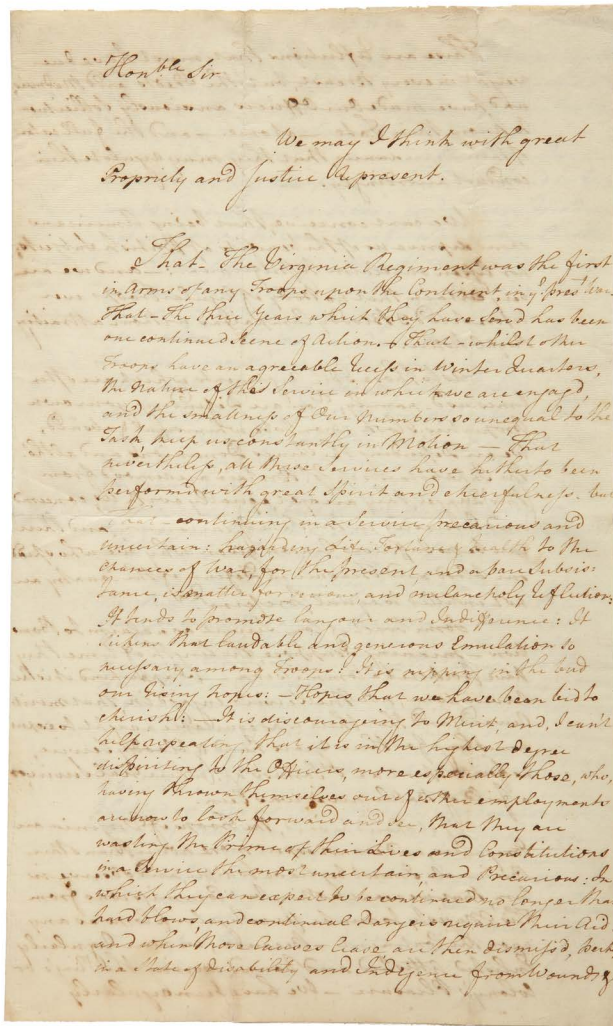 Hon:ble Sir
We may I think with great
Propriety and Justice represent.
That – The Virginia Regiment was the first
in Arms of any Troops upon the Continent, in ye presᵗ War.
That – The three Years which they have Serv'd has been
one continued Scene of Action. – That – whilst other
Troops have an agreeable recess in Winter Quarters,
the nature of the Service in which we are engag'd,
and the smallness of Our Numbers so unequal to the
Task, keep us constantly in Motion – That
nevertheless, all these Services have hitherto been
performd with great Spirit and cheerfulness. but
continuing in a Service precarious and
uncertain: hazarding Life Fortune & health to the
chances of War, for the present, and a bare Subsis-
tance, is matter for serious, and melancholy reflection:
It tends to promote langour and Indifference: It
sickens that laudable and generous Emulation so
necessary among Troops: It is nipping in the bud
our rising hopes: – Hopes that we have been led to
cherish: – It is discourageing to Merit, and, I can't
help repeating, that it is in the highest degree
dispiriting to the Officers, more especially those, who,
having thrown themselves out of other employments
are now to look forward and see, that they are
wasting the Prime of their Lives and Constitutions
in a Service the most uncertain, and Precarious: In
which they can expect to be continued no longer than
hard blows and continual Dangers require their Aid
and when those Causes Cease, are then dismiss'd, perh
in a State of disability and Indigence from Wounds &